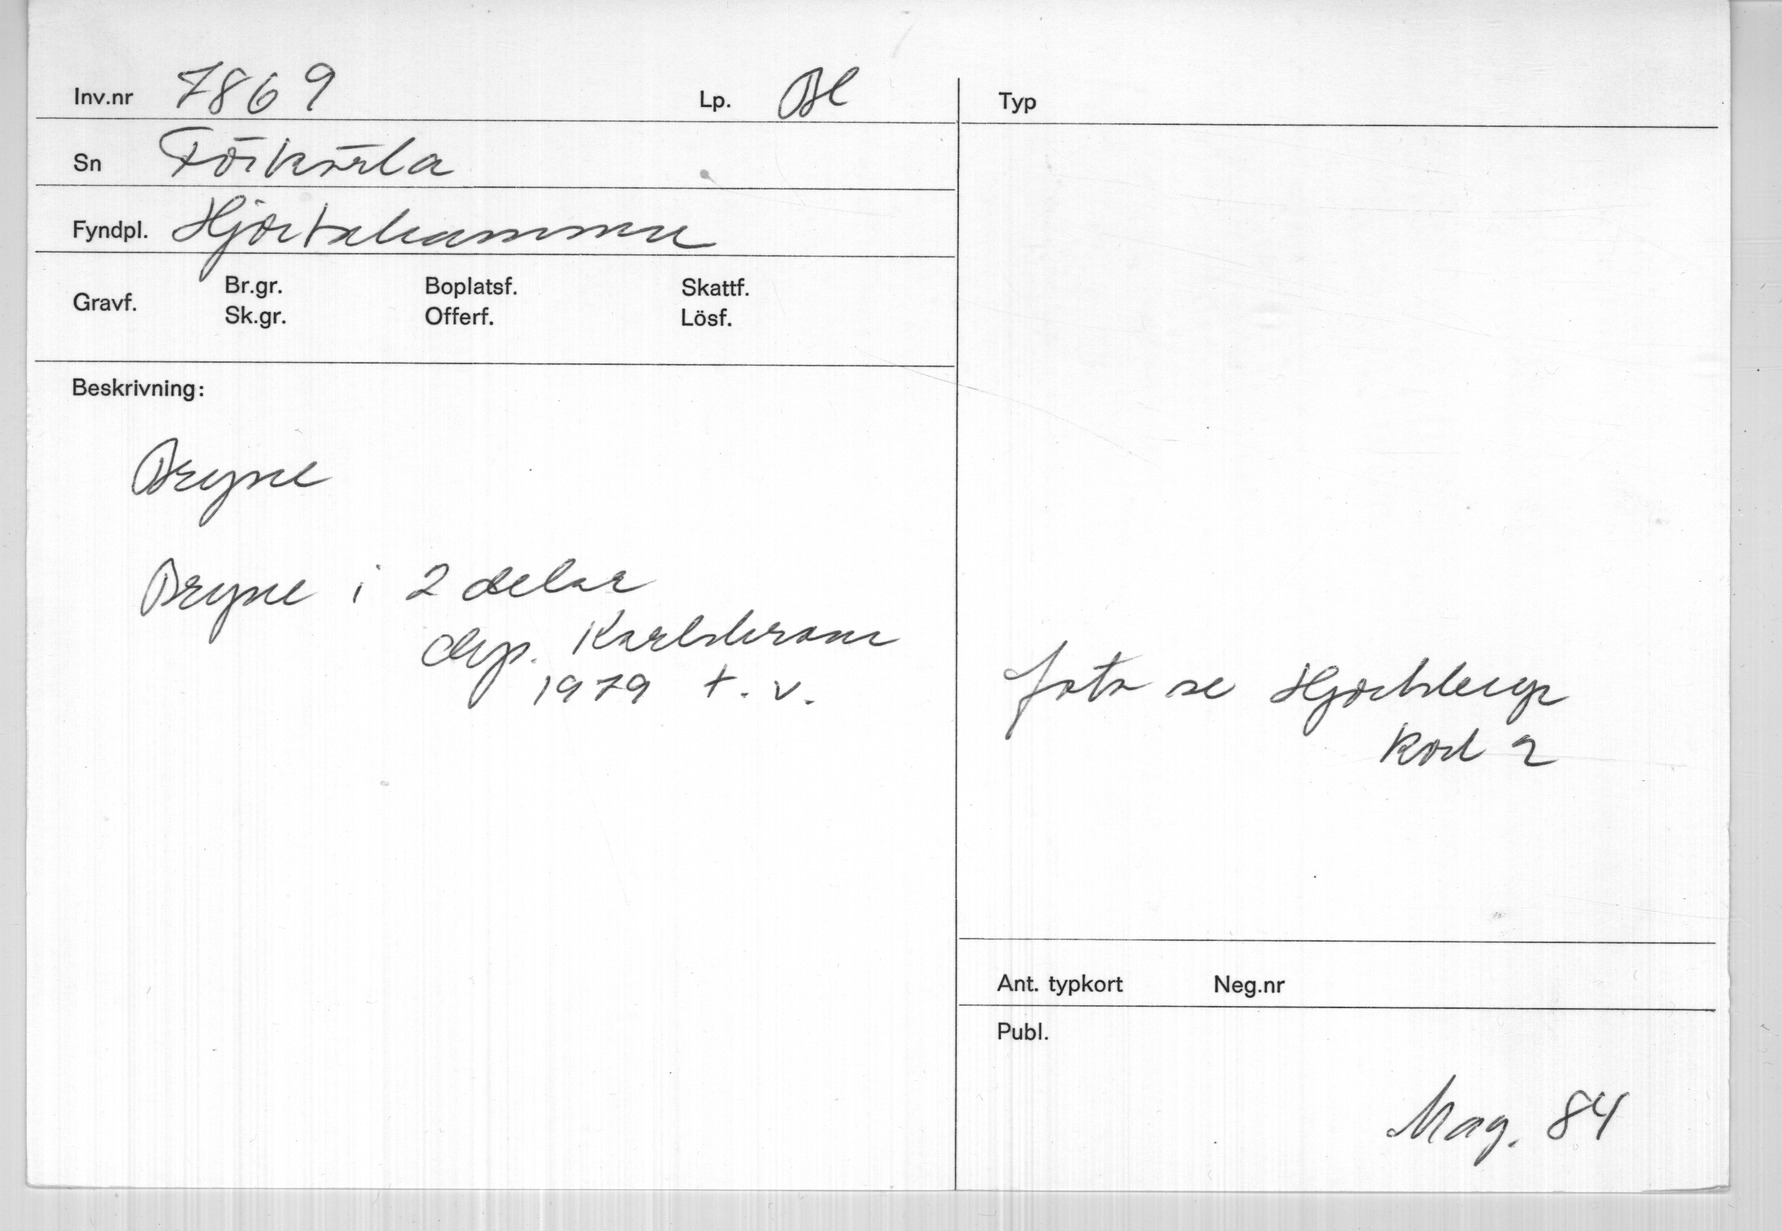 Inv.nr 7869 Lp. Bl
Sn Förkärla
Fyndpl. Hjortahammar
Gravf. Br.gr. Boplatsf. Skattf.
Sk.gr. Offerf. Lösf.
Beskrivning:
Bryne
Bryne i 2 delar
dep. Karlskrona
1979 t.v.
Typ
foto se Hjortsberga
kod 2
Ant. typkort Neg.nr
Publ.
Mag. 84